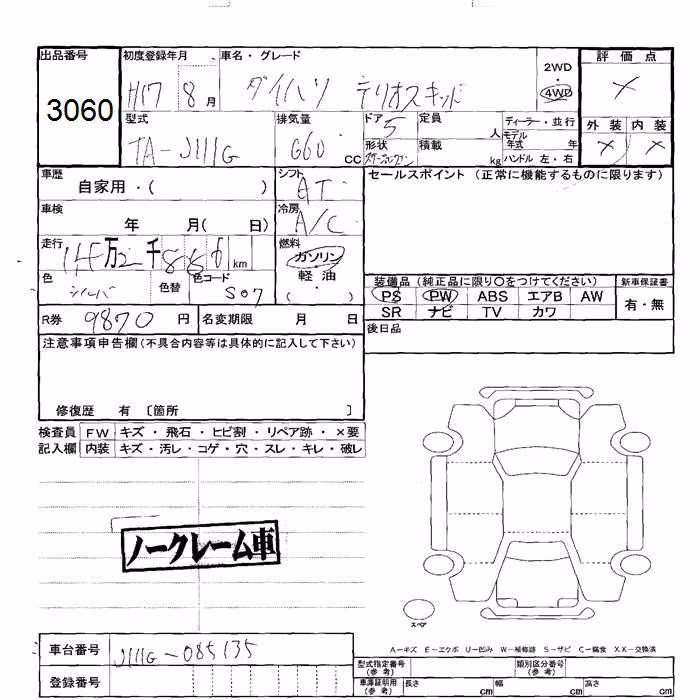 出品番号 初度登録年月 車名・グレード 2WD 評価点
3060 H17 8月 ダイハツ テリオスキッド 4WD ×
型式 排気量 ドア 定員 人 ディーラー・並行 外装 内装
TA-J111G 660 cc 5 モデル年式 年 × ×
形状 積載 kg ハンドル 左・右
車歴 シフト セールスポイント (正常に機能するものに限ります)
自家用・( ) AT
車検 冷房
年 月( 日) A/C
走行 燃料
万 千 km ガソリン
色 色替 色コード 軽油 装備品 (純正品に限り〇をつけてください) 新車保証書
シルバ S07 ( ) PS PW ABS エアB AW 有・無
R券 9870 円 名変期限 月 日 SR ナビ TV カワ
後日品
注意事項申告欄 (不具合内容等は具体的に記入して下さい)
修復歴 有 〔箇所 〕
検査員 FW キズ・飛石・ヒビ割・リペア跡・×要
記入欄 内装 キズ・汚レ・コゲ・穴・スレ・キレ・破レ
ノークレーム車
スペア
A-キズ E-エクボ U-凹み W-補修跡 S-サビ C-腐食 XX-交換済
車台番号 J111G-085135
登録番号
型式指定番号 (参考) 類別区分番号 (参考)
車庫証明用 (参考) 長さ cm 幅 cm 高さ cm